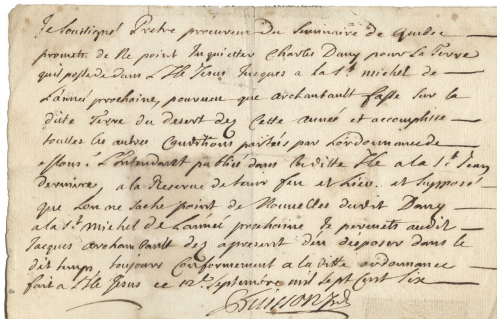 Je Soussigné Prêtre procureur du Seminaire de Quebec
promets de Ne point Inquietter Charles Dany pour La Terre
qu'il possede dans L'Isle Jesus Jusques a la St. michel de
L'année prochaine, pourveu que archambault fasse sur la
ditte Terre du desert dez Cette année et accomplisse
touttes les autres Conditions portées par L'ordonnance de
L'Intendant publiée dans laditte Isle a la St. Jean
derniere, a la Reserve de tenir feu et Lieu. et Supposé
que L'on ne Sache point de Nouvelles dudit Dany
a la St. Michel de L'année prochaine Je permets audit
Jacques archambault dez apresent d'en disposer dans le
dit temps toujours Conformement a la ditte ordonnance
fait a L'Isle Jesus ce 12e. Septembre mil Sept Cent Six
Buisson